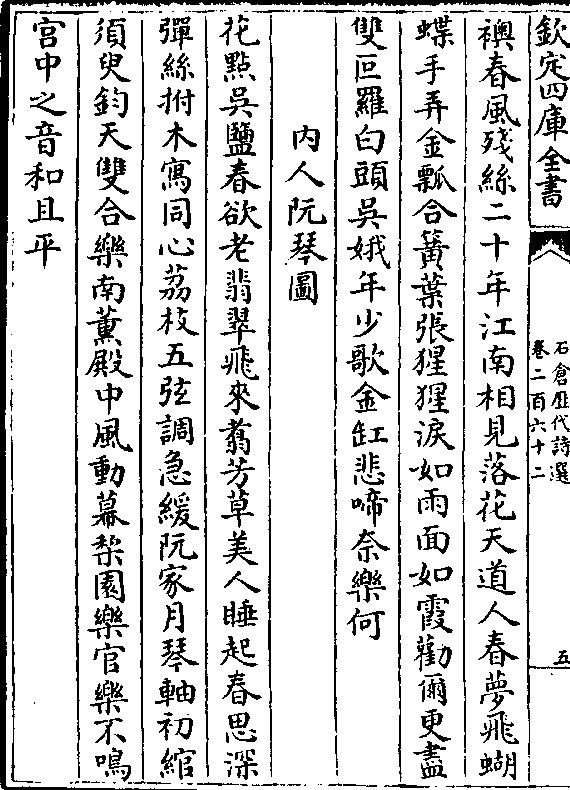 欽定四庫全書
石倉歷代詩選
卷二百六十二
五
襖春風殘絲二十年江南相見落花天道人春夢飛蝴
蝶手弄金瓢合簧葉張猩猩淚如雨面如霞勸爾更盡
雙叵羅白頭吳娥年少歌金缸悲啼奈樂何
内人阮琴圖
花點吳鹽春欲老翡翠飛來翦芳草美人睡起春思深
彈絲拊木寫同心荔枝五弦調急緩阮家月琴軸初綰
須臾鈞天雙合樂南薫殿中風動幕棃園樂官樂不鳴
宫中之音和且平